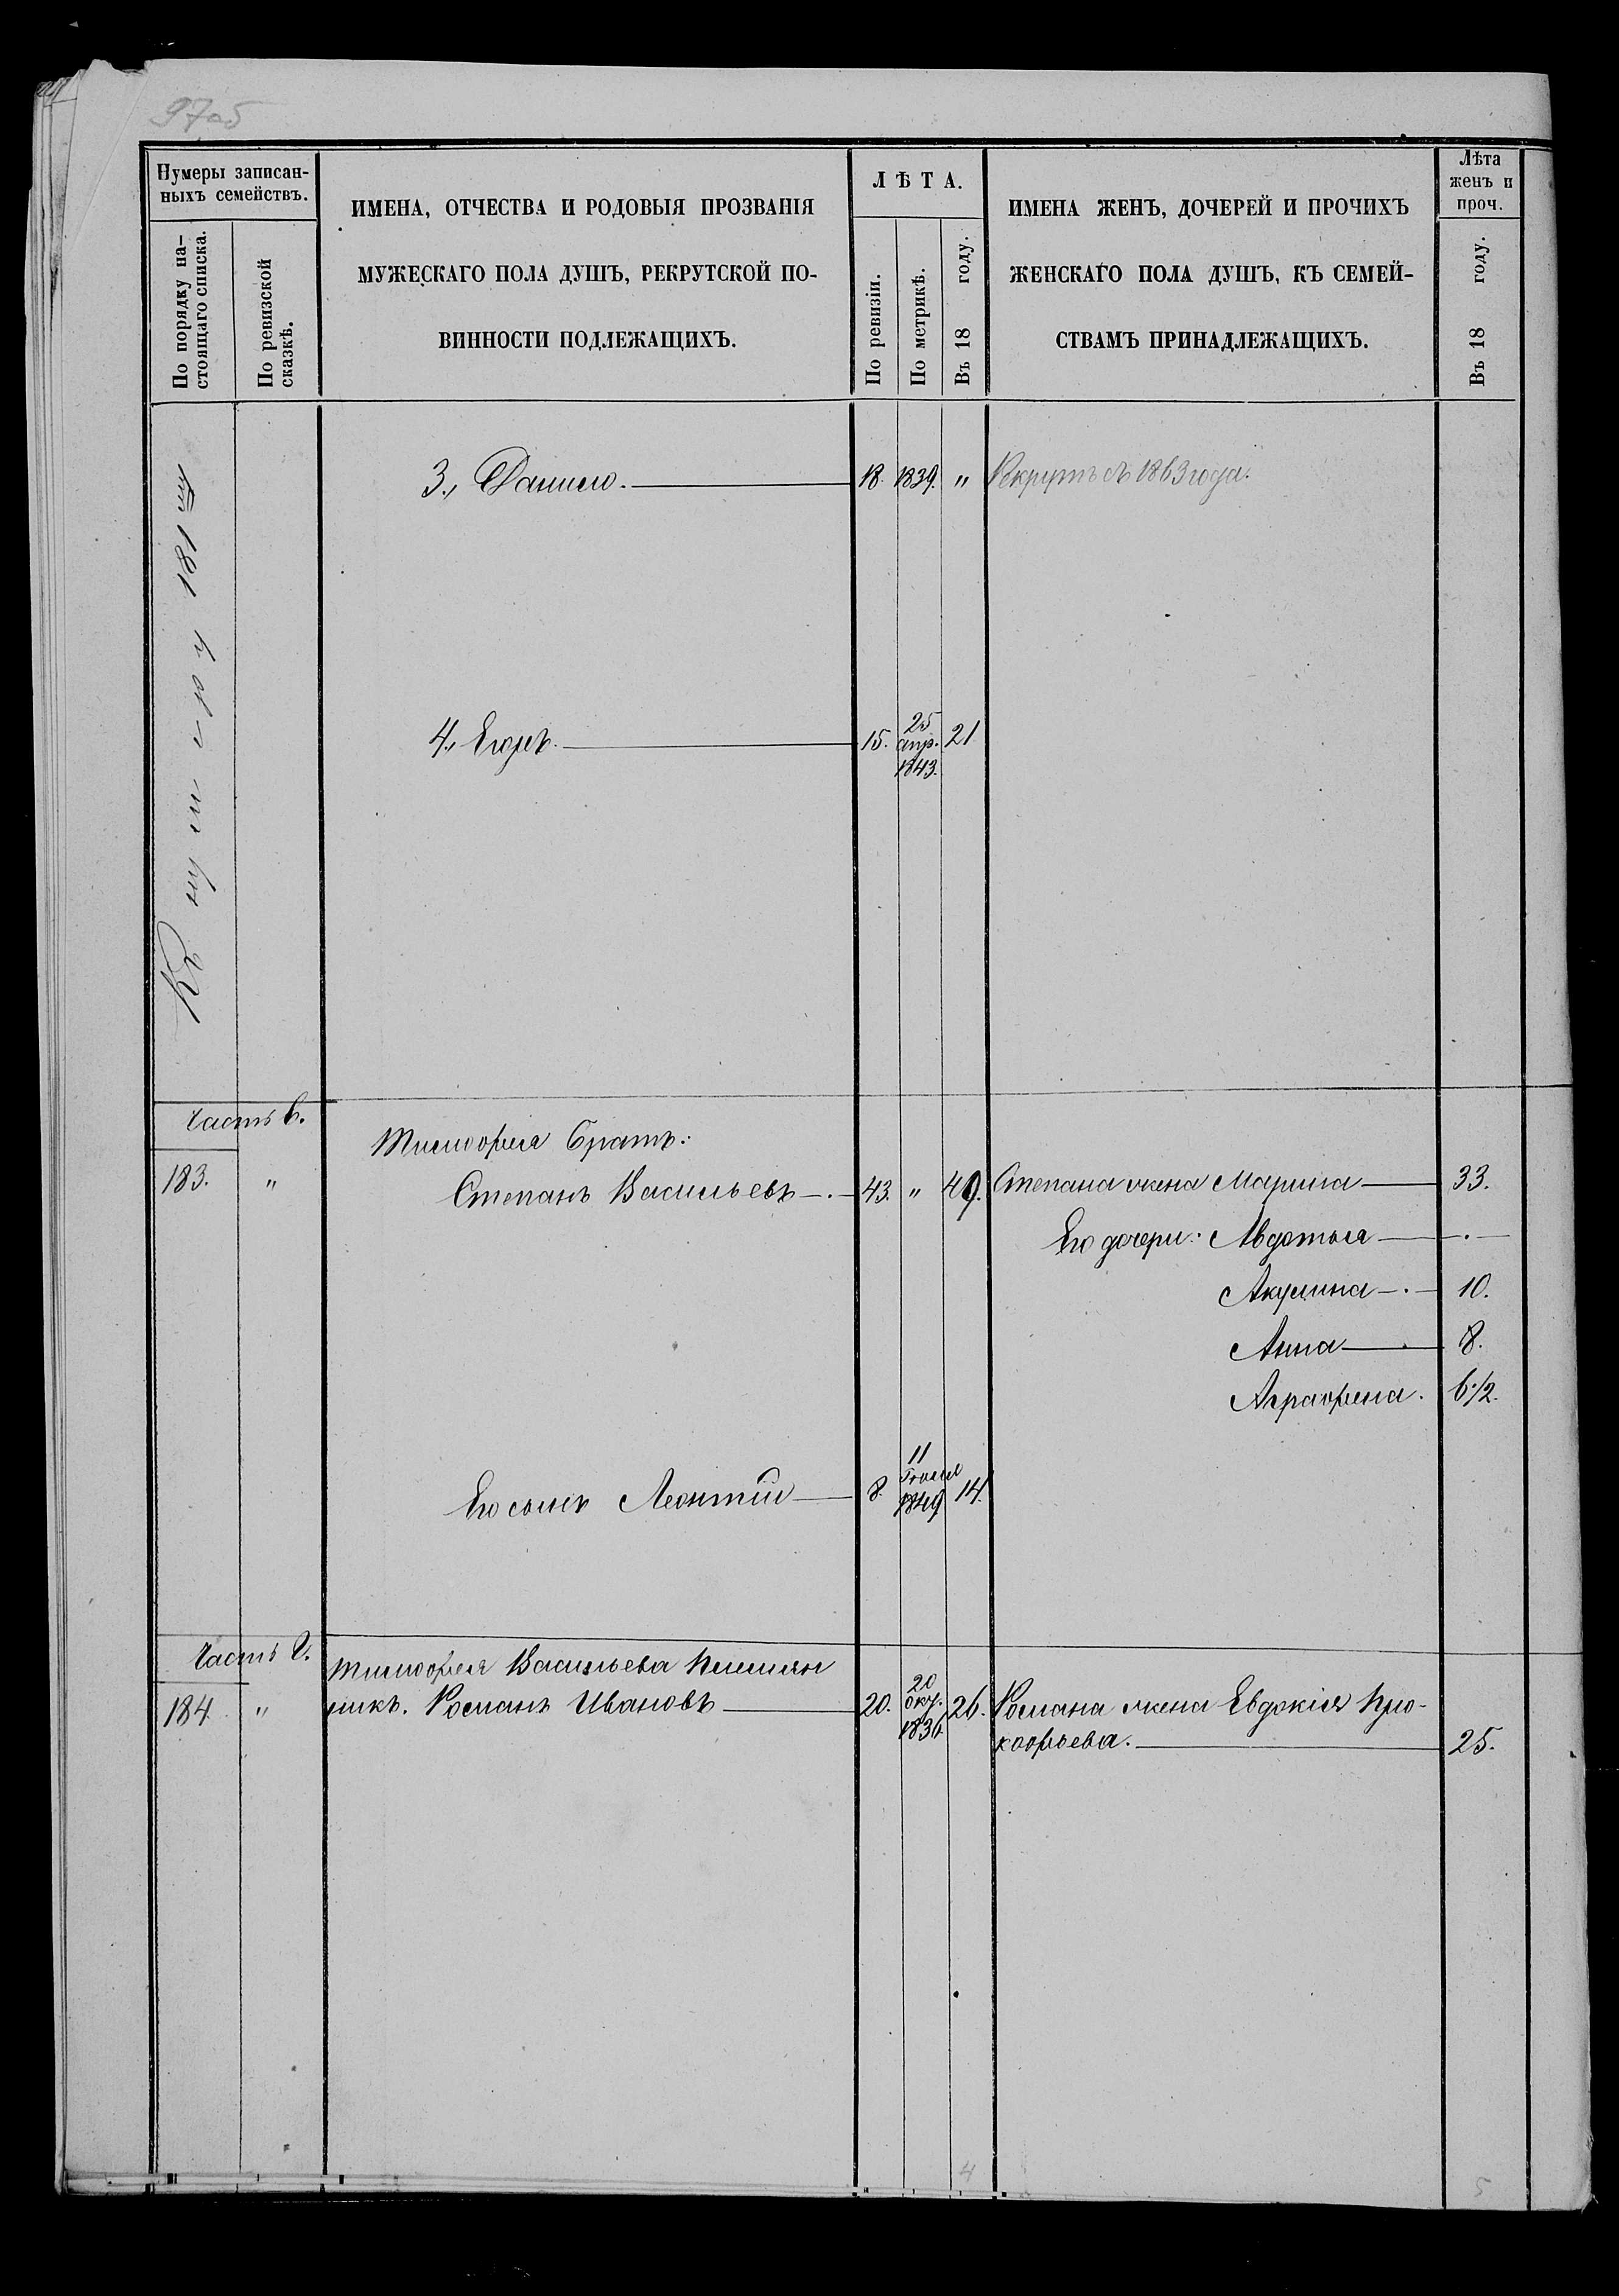 97об
Нумеры записан-
ныхъ семействъ.
По порядку на-
стоящаго списка.
По ревизской
сказкѣ.
ИМЕНА, ОТЧЕСТВА И РОДОВЫЯ ПРОЗВАНІЯ
МУЖЕСКАГО ПОЛА ДУШЪ, РЕКРУТСКОЙ ПО-
ВИННОСТИ ПОДЛЕЖАЩИХЪ.
ЛѢТА.
По ревизіи.
По метрикѣ.
Въ 18 году.
ИМЕНА ЖЕНЪ, ДОЧЕРЕЙ И ПРОЧИХЪ
ЖЕНСКАГО ПОЛА ДУШЪ, КЪ СЕМЕЙ-
СТВАМЪ ПРИНАДЛЕЖАЩИХЪ.
Лѣта
женъ и
проч.
Въ 18 году.
Къ нумеру 181му
3., Данило. 18. 1839. " Рекрутъ съ 1863 года.
4., Егоръ. 15. 25 апр. 1843. 21
Часть в.
Тимофея Братъ:
183. " Степанъ Васильевъ 43. " 49. Степана жена Марина 33.
Его дочери: Авдотья
Акулина 10.
Анна 8.
Аграфена. 6 1/2.
Его сынъ Леонтій 8. 11 Іюня 1849 14.
Часть г.
Тимофея Васильева племян
184. " никъ. Романъ Ивановъ 20. 20 окт. 1836. 26. Романа жена Евдокія Про-
кофьева. 25.
4
5